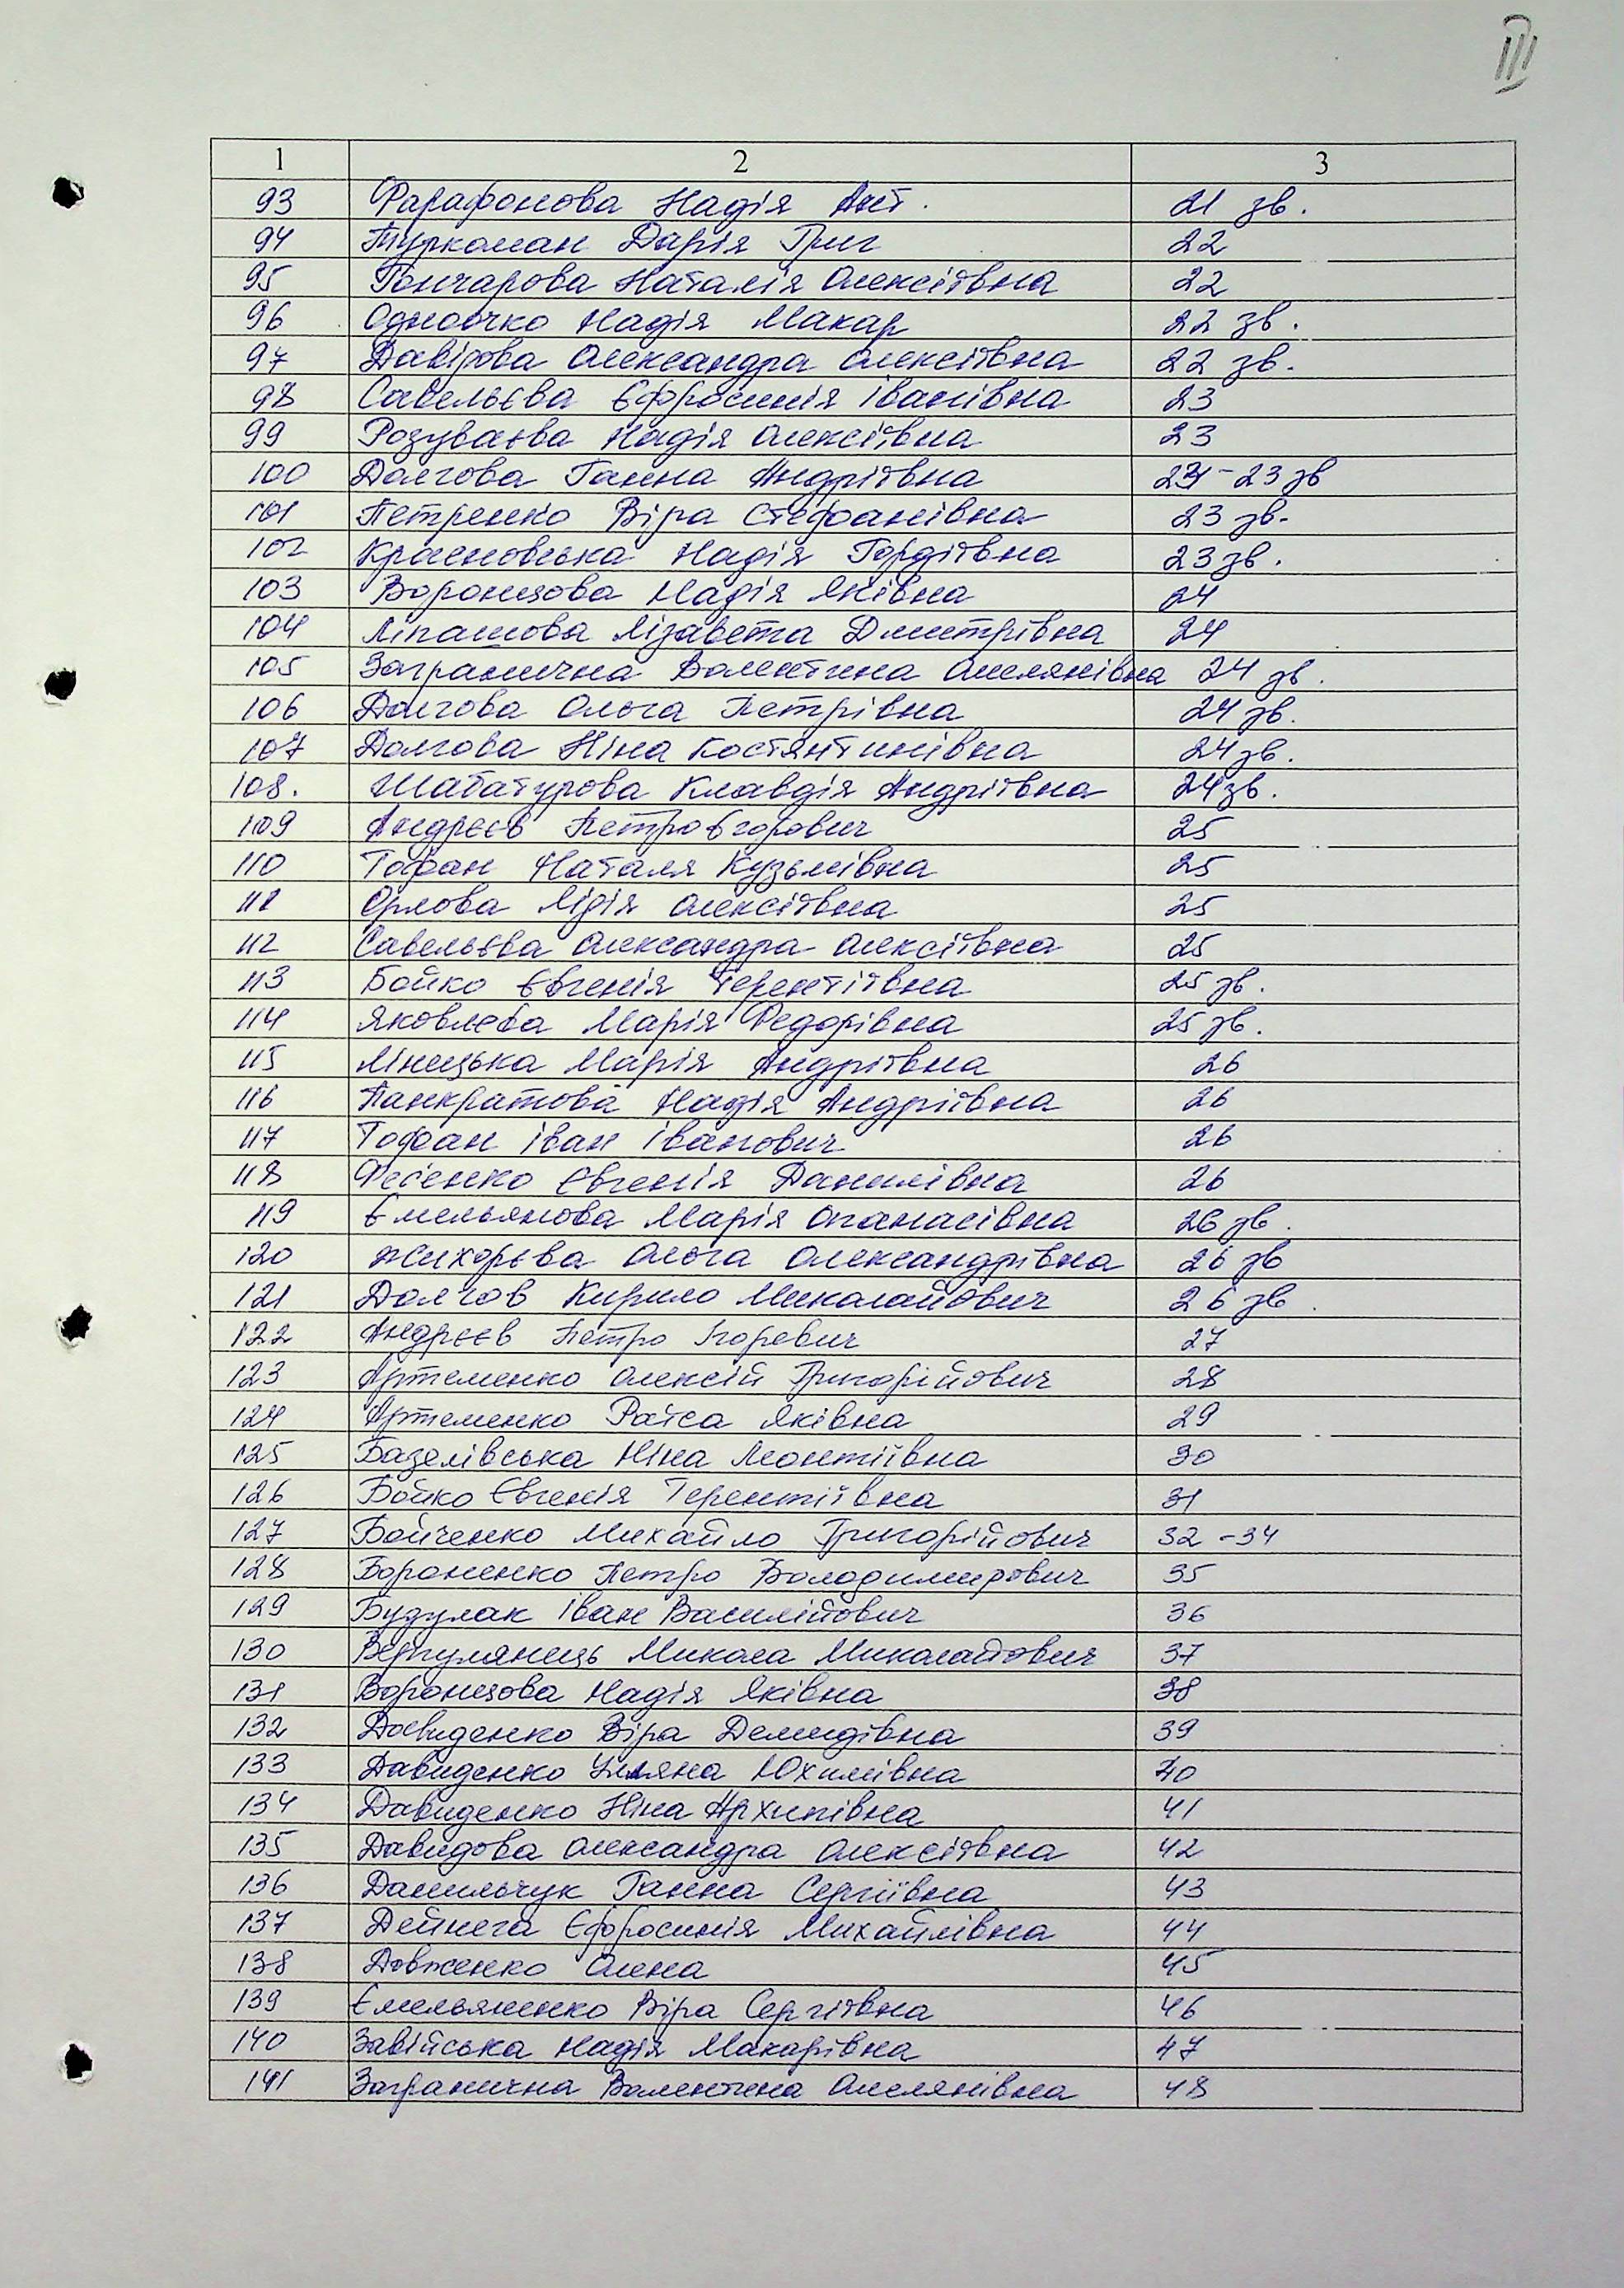 III
1 2 3
93 Фарафонова Надія Ант. 21 зв.
94 Туркоман Дарія Григ 22
95 Гончарова Наталія Олексіївна 22
96 Одноочко Надія Макар 22 зв.
97 Давідова Олександра Олексіївна 22 зв.
98 Савельєва Єфросинія Іванівна 23
99 Розуваєва Надія Олексіївна 23
100 Долгова Ганна Андріївна 23-23 зв
101 Петренко Віра Стефанівна 23 зв.
102 Красновська Надія Гордіївна 23 зв.
103 Воронцова Надія Яківна 24
104 Ліпашова Лізавета Дмитрівна 24
105 Загранична Валентина Омелянівна 24 зв.
106 Долгова Ольга Петрівна 24 зв.
107 Долгова Ніна Костянтинівна 24 зв.
108. Шабатурова Клавдія Андріївна 24 зв.
109 Андрєєв Петро Єгорович 25
110 Тофан Наталя Кузьмівна 25
111 Орлова Лідія Олексіївна 25
112 Савельєва Олександра Олексіївна 25
113 Бойко Євгенія Терентіївна 25 зв.
114 Яковлєва Марія Федорівна 25 зв.
115 Лінецька Марія Андріївна 26
116 Панкратова Надія Андріївна 26
117 Тофан Іван Іванович 26
118 Фесенко Євгенія Данилівна 26
119 Ємельянова Марія Опанасівна 26 зв.
120 Жихорєва Ольга Олександрівна 26 зв
121 Долгов Кирило Миколайович 26 зв.
122 Андрєєв Петро Ігоревич 27
123 Артеменко Олексій Григорійович 28
124 Артеменко Раїса Яківна 29
125 Базелівська Ніна Леонтіївна 30
126 Бойко Євгенія Терентіївна 31
127 Бойченко Михайло Григорійович 32-34
128 Бороненко Петро Володимирович 35
129 Будулак Іван Василійович 36
130 Вергулянець Микола Миколайович 37
131 Воронцова Надія Яківна 38
132 Давиденко Віра Демидівна 39
133 Давиденко Уляна Юхимівна 40
134 Давиденко Ніна Архипівна 41
135 Давидова Олександра Олексіївна 42
136 Данильчук Ганна Сергіївна 43
137 Дейнега Єфросинія Михайлівна 44
138 Довженко Олена 45
139 Ємельяненко Віра Сергіївна 46
140 Завійська Надія Макарівна 47
141 Загранична Валентина Омелянівна 48